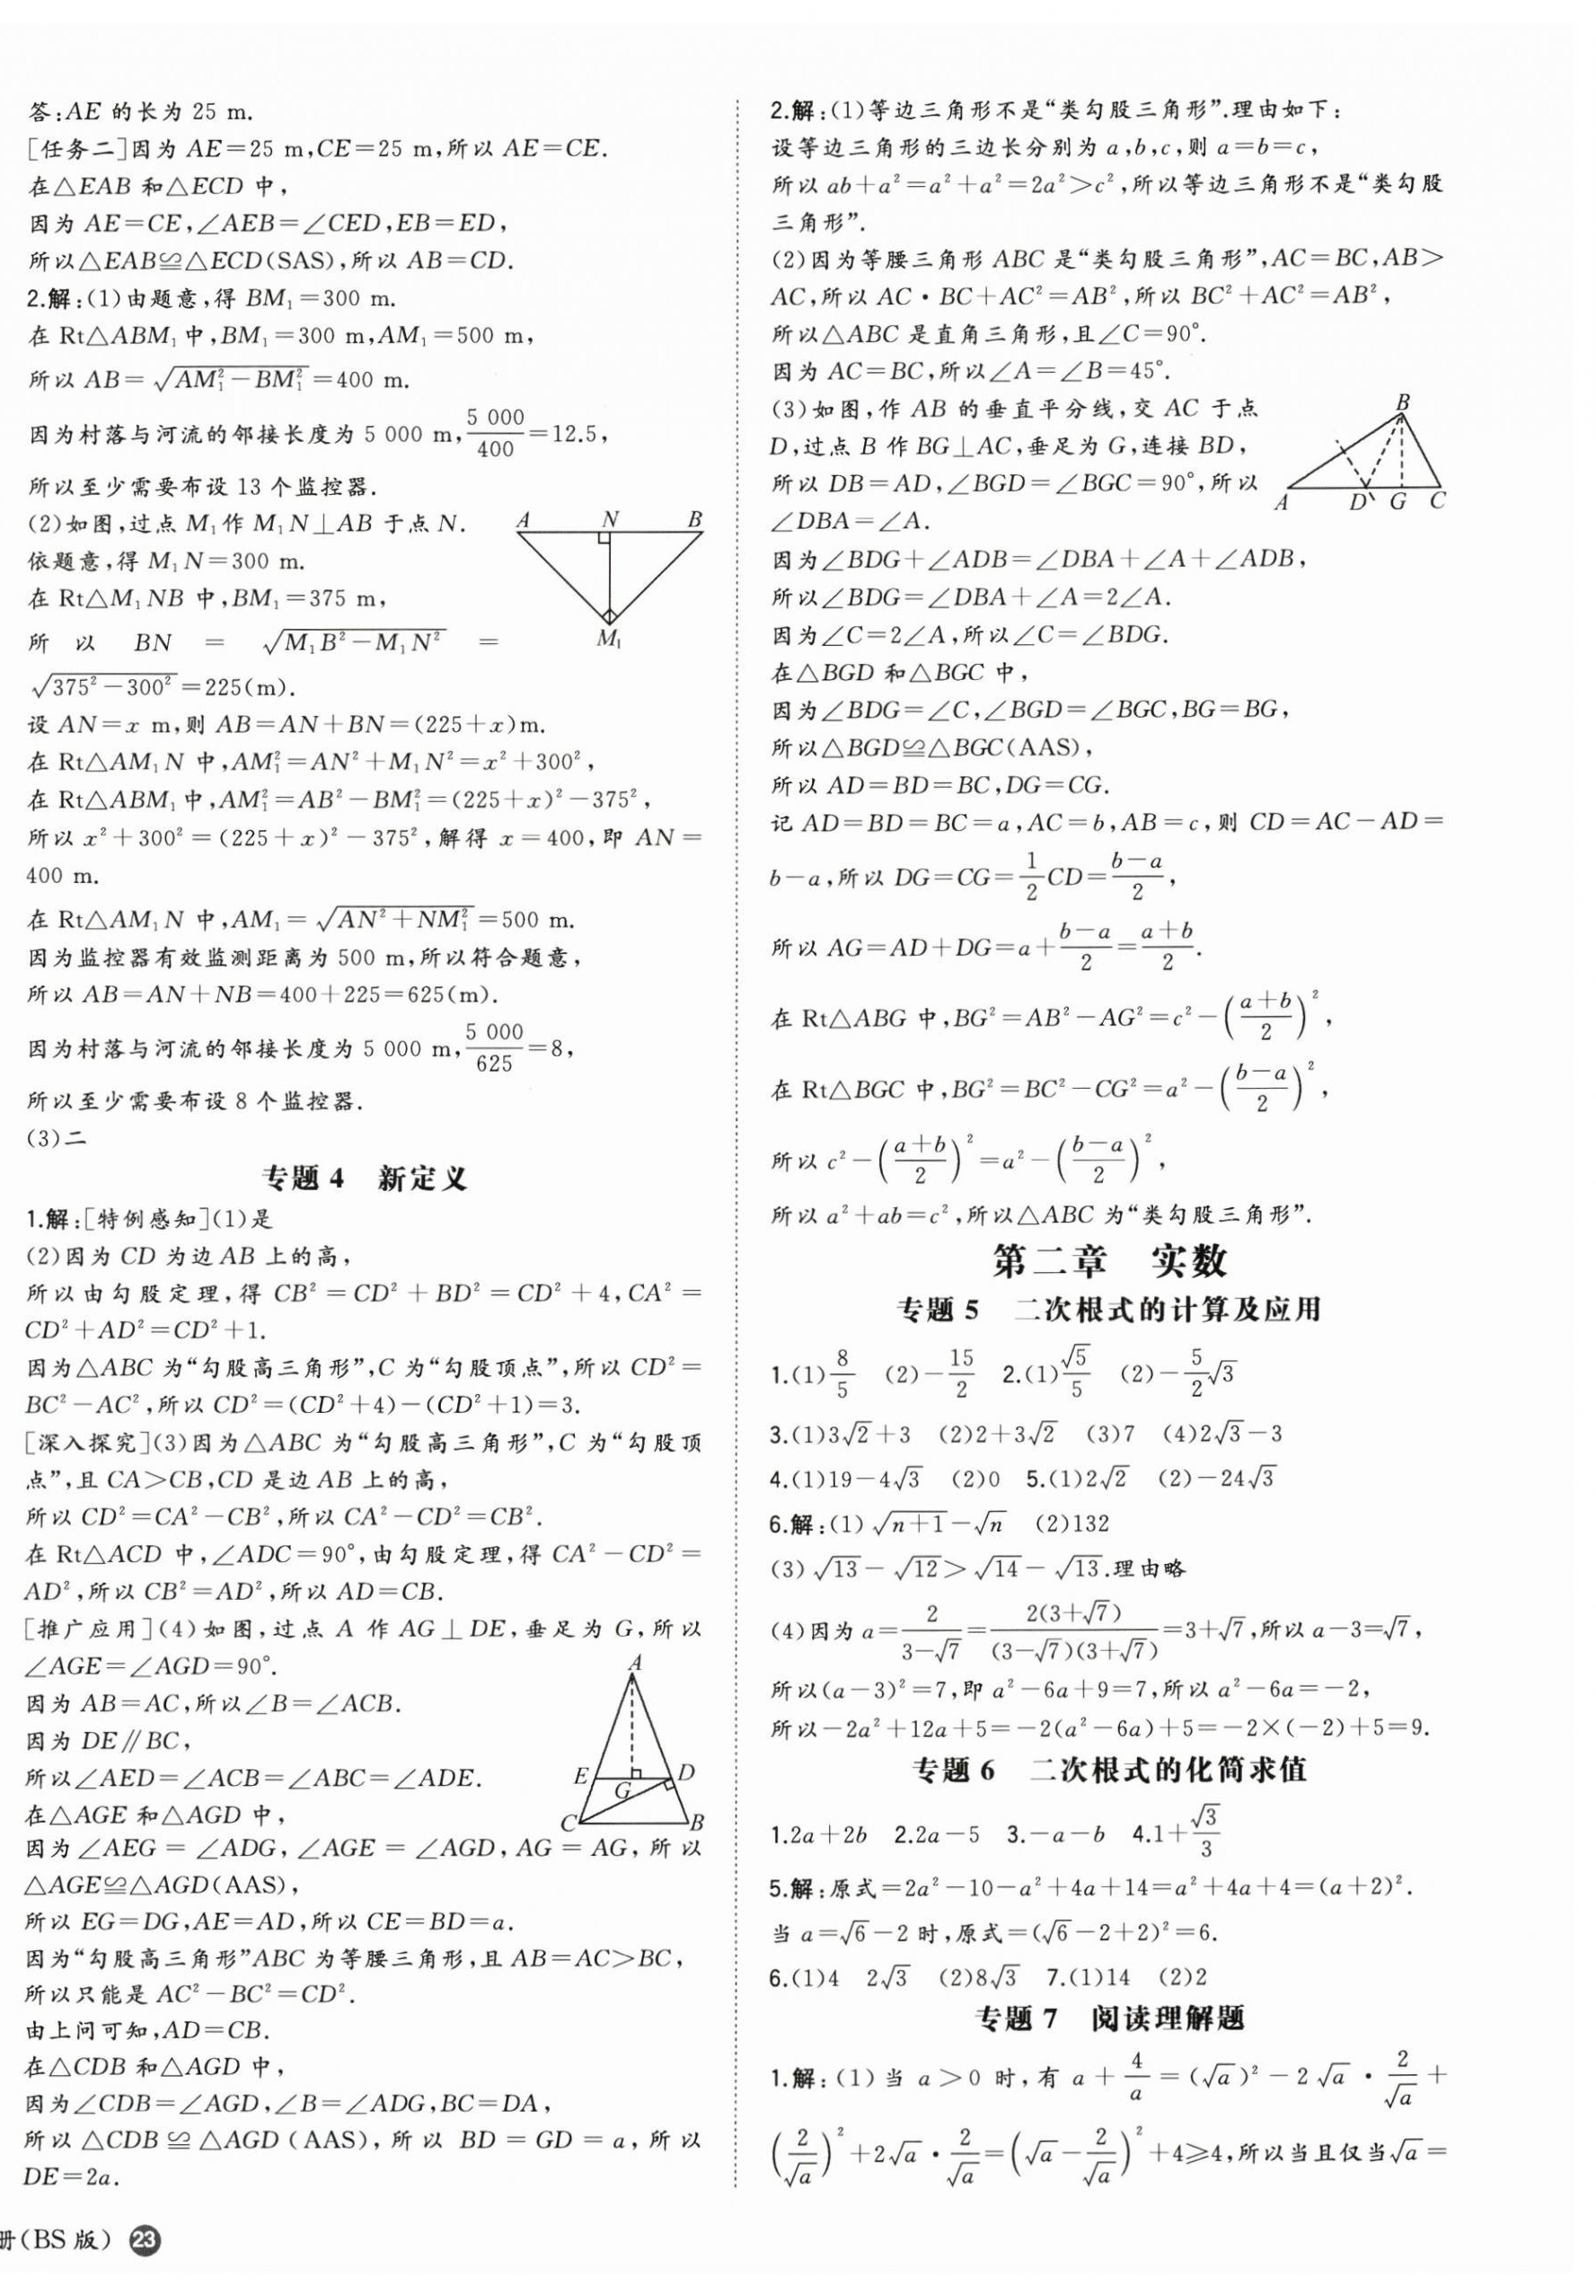 答:AE 的长为 25 m.
[任务二]因为 AE=25 m,CE=25 m,所以 AE=CE.
在△EAB 和△ECD 中,
因为 AE=CE,∠AEB=∠CED,EB=ED,
所以△EAB≌△ECD(SAS),所以 AB=CD.
2.解:(1)由题意,得 BM₁=300 m.
在 Rt△ABM₁中,BM₁=300 m,AM₁=500 m,
所以 AB=√(AM₁²-BM₁²)=400 m.
因为村落与河流的邻接长度为 5 000 m,5 000/400=12.5,
所以至少需要布设 13 个监控器.
(2)如图,过点 M₁作 M₁N⊥AB 于点 N.
依题意,得 M₁N=300 m.
在 Rt△M₁NB 中,BM₁=375 m,
所以 BN = √(M₁B²-M₁N²) =
√(375²-300²)=225(m).
A N B
M₁
设 AN=x m,则 AB=AN+BN=(225+x)m.
在 Rt△AM₁N 中,AM₁²=AN²+M₁N²=x²+300²,
在 Rt△ABM₁中,AM₁²=AB²-BM₁²=(225+x)²-375²,
所以 x²+300²=(225+x)²-375²,解得 x=400,即 AN=
400 m.
在 Rt△AM₁N 中,AM₁=√(AN²+NM₁²)=500 m.
因为监控器有效监测距离为 500 m,所以符合题意,
所以 AB=AN+NB=400+225=625(m).
因为村落与河流的邻接长度为 5 000 m,5 000/625=8,
所以至少需要布设 8 个监控器.
(3)二
专题 4 新定义
1.解:[特例感知](1)是
(2)因为 CD 为边 AB 上的高,
所以由勾股定理,得 CB²=CD²+BD²=CD²+4,CA²=
CD²+AD²=CD²+1.
因为△ABC 为“勾股高三角形”,C 为“勾股顶点”,所以 CD²=
BC²-AC²,所以 CD²=(CD²+4)-(CD²+1)=3.
[深入探究](3)因为△ABC 为“勾股高三角形”,C 为“勾股顶
点”,且 CA>CB,CD 是边 AB 上的高,
所以 CD²=CA²-CB²,所以 CA²-CD²=CB².
在 Rt△ACD 中,∠ADC=90°,由勾股定理,得 CA²-CD²=
AD²,所以 CB²=AD²,所以 AD=CB.
[推广应用](4)如图,过点 A 作 AG⊥DE,垂足为 G,所以
∠AGE=∠AGD=90°.
因为 AB=AC,所以∠B=∠ACB.
因为 DE∥BC,
所以∠AED=∠ACB=∠ABC=∠ADE.
在△AGE 和△AGD 中,
A
E G D
C B
因为∠AEG=∠ADG,∠AGE=∠AGD,AG=AG,所以
△AGE≌△AGD(AAS),
所以 EG=DG,AE=AD,所以 CE=BD=a.
因为“勾股高三角形”ABC 为等腰三角形,且 AB=AC>BC,
所以只能是 AC²-BC²=CD².
由上问可知,AD=CB.
在△CDB 和△AGD 中,
因为∠CDB=∠AGD,∠B=∠ADG,BC=DA,
所以△CDB≌△AGD(AAS),所以 BD=GD=a,所以
DE=2a.
册(BS 版) 23
2.解:(1)等边三角形不是“类勾股三角形”.理由如下:
设等边三角形的三边长分别为 a,b,c,则 a=b=c,
所以 ab+a²=a²+a²=2a²>c²,所以等边三角形不是“类勾股
三角形”.
(2)因为等腰三角形 ABC 是“类勾股三角形”,AC=BC,AB>
AC,所以 AC·BC+AC²=AB²,所以 BC²+AC²=AB²,
所以△ABC 是直角三角形,且∠C=90°.
因为 AC=BC,所以∠A=∠B=45°.
(3)如图,作 AB 的垂直平分线,交 AC 于点
D,过点 B 作 BG⊥AC,垂足为 G,连接 BD,
所以 DB=AD,∠BGD=∠BGC=90°,所以
∠DBA=∠A.
B
A D G C
因为∠BDG+∠ADB=∠DBA+∠A+∠ADB,
所以∠BDG=∠DBA+∠A=2∠A.
因为∠C=2∠A,所以∠C=∠BDG.
在△BGD 和△BGC 中,
因为∠BDG=∠C,∠BGD=∠BGC,BG=BG,
所以△BGD≌△BGC(AAS),
所以 AD=BD=BC,DG=CG.
记 AD=BD=BC=a,AC=b,AB=c,则 CD=AC-AD=
b-a,所以 DG=CG=1/2CD=(b-a)/2,
所以 AG=AD+DG=a+(b-a)/2=(a+b)/2.
在 Rt△ABG 中,BG²=AB²-AG²=c²-((a+b)/2)²,
在 Rt△BGC 中,BG²=BC²-CG²=a²-((b-a)/2)²,
所以 c²-((a+b)/2)²=a²-((b-a)/2)²,
所以 a²+ab=c²,所以△ABC 为“类勾股三角形”.
第二章 实数
专题 5 二次根式的计算及应用
1.(1)8/5 (2)-15/2 2.(1)√5/5 (2)-5/2√3
3.(1)3√2+3 (2)2+3√2 (3)7 (4)2√3-3
4.(1)19-4√3 (2)0 5.(1)2√2 (2)-24√3
6.解:(1)√(n+1)-√n (2)132
(3)√13-√12>√14-√13.理由略
(4)因为 a=2/(3-√7)=2(3+√7)/((3-√7)(3+√7))=3+√7,所以 a-3=√7,
所以(a-3)²=7,即 a²-6a+9=7,所以 a²-6a=-2,
所以-2a²+12a+5=-2(a²-6a)+5=-2×(-2)+5=9.
专题 6 二次根式的化简求值
1.2a+2b 2.2a-5 3.-a-b 4.1+√3/3
5.解:原式=2a²-10-a²+4a+14=a²+4a+4=(a+2)².
当 a=√6-2 时,原式=(√6-2+2)²=6.
6.(1)4 2√3 (2)8√3 7.(1)14 (2)2
专题 7 阅读理解题
1.解:(1)当 a>0 时,有 a+4/a=(√a)²-2√a·2/√a+
(2/√a)²+2√a·2/√a=(√a-2/√a)²+4≥4,所以当且仅当√a=